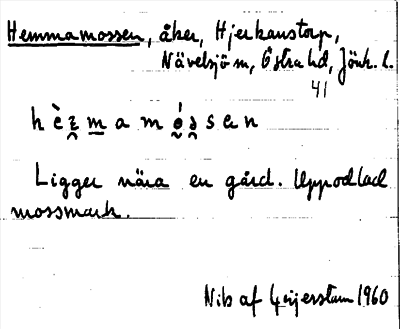 Hemmamossen, åker, Hjerkanstorp,
Nävelsjö sn, Östra hd, Jönk. l.
41
Ligger nära en gård. Uppodlad
mossmark.
Nils af Geijerstam 1960